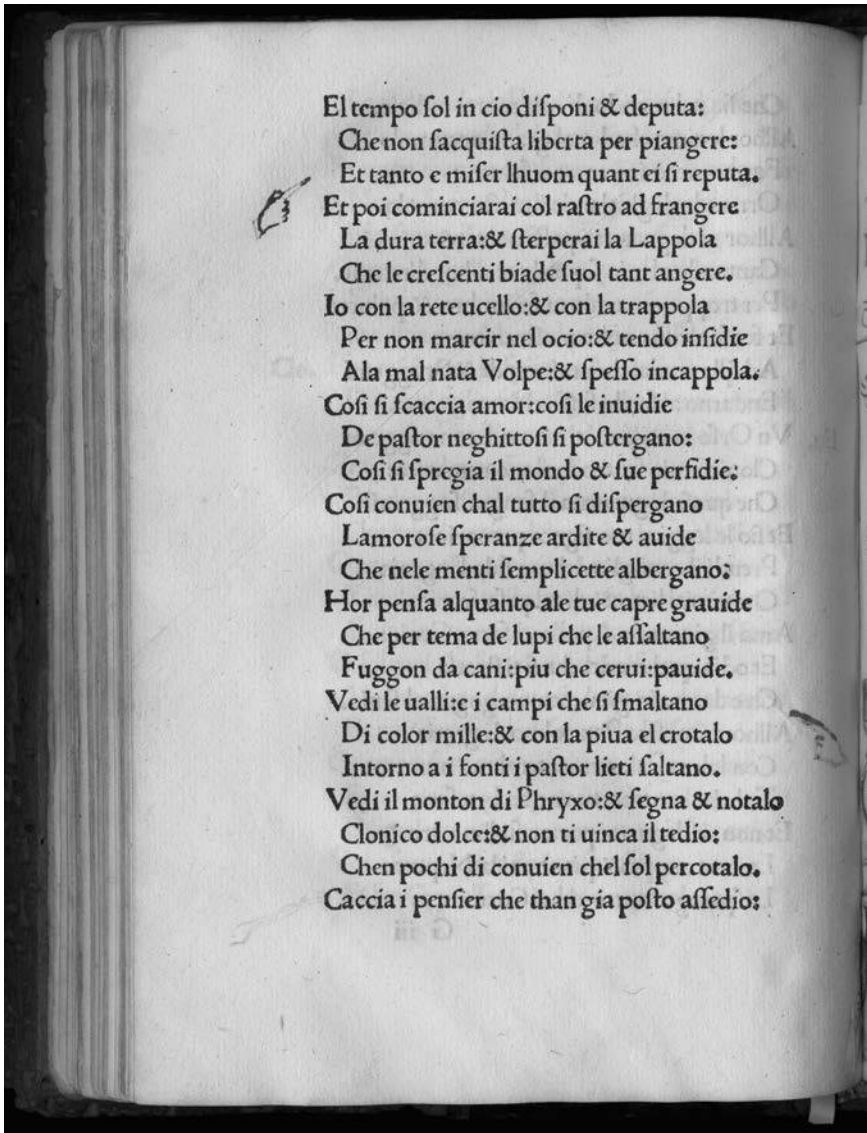 El tempo ſol in cio diſponi & deputa:
Che non ſacquiſta liberta per piangere:
Et tanto e miſer lhuom quant ei ſi reputa.
Et poi cominciarai col raſtro ad frangere
La dura terra:& ſterperai la Lappola
Che le creſcenti biade ſuol tant angere.
Io con la rete ucello:& con la trappola
Per non marcir nel ocio:& tendo inſidie
Ala mal nata Volpe:& ſpeſſo incappola.
Coſi ſi ſcaccia amor:coſi le inuidie
De paſtor neghittoſi ſi poſtergano:
Coſi ſi ſpregia il mondo & ſue perfidie.
Coſi conuien chal tutto ſi diſpergano
Lamoroſe ſperanze ardite & auide
Che nele menti ſemplicette albergano:
Hor penſa alquanto ale tue capre grauide
Che per tema de lupi che le aſſaltano
Fuggon da cani:piu che cerui:pauide.
Vedi le ualli:e i campi che ſi ſmaltano
Di color mille:& con la piua el crotalo
Intorno a i fonti i paſtor lieti ſaltano.
Vedi il monton di Phryxo:& ſegna & notalo
Clonico dolce:& non ti uinca il tedio:
Chen pochi di conuien chel ſol percotalo.
Caccia i penſier che than gia poſto aſſedio: